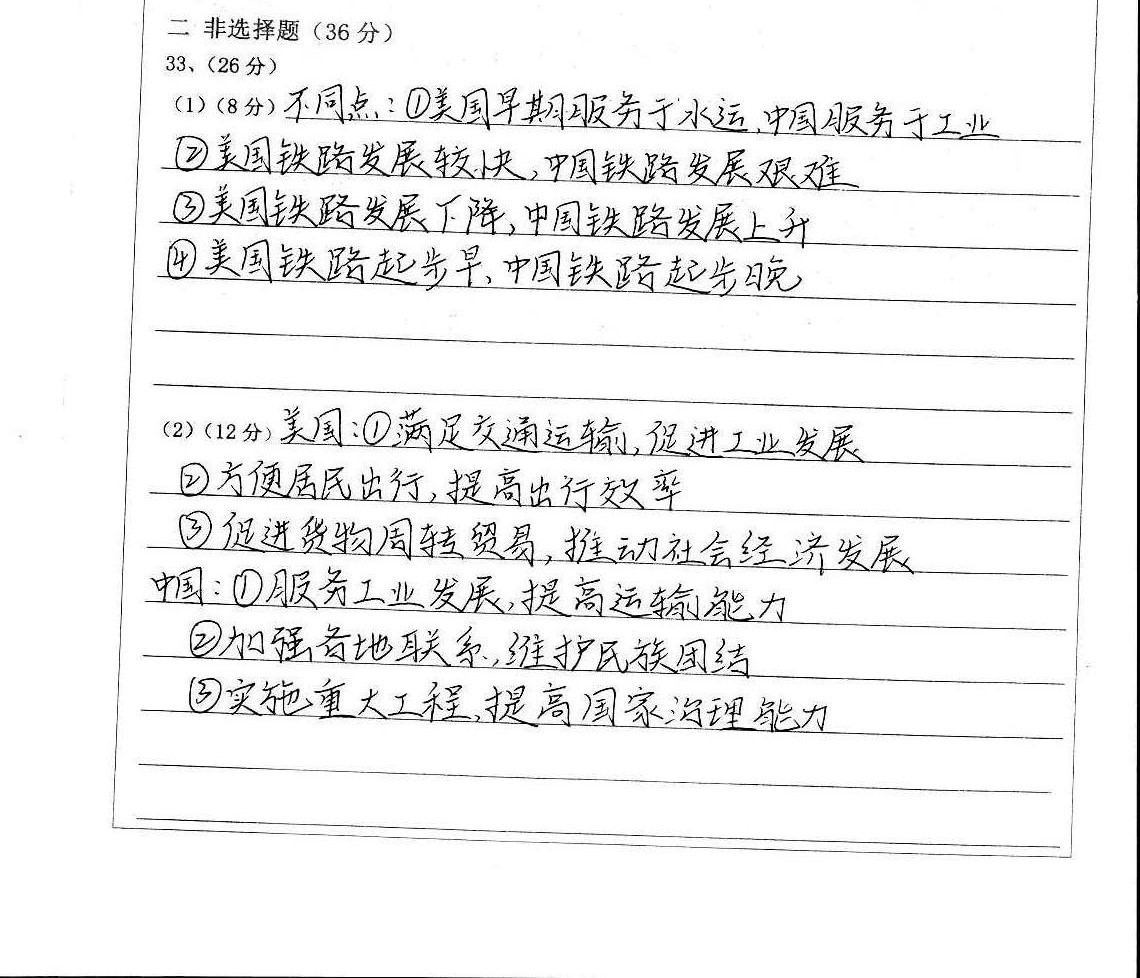 二 非选择题（36分）
33、（26分）
（1）（8分）不同点：①美国早期服务于水运，中国服务于工业
②美国铁路发展较快，中国铁路发展艰难
③美国铁路发展下降，中国铁路发展上升
④美国铁路起步早，中国铁路起步晚
（2）（12分）美国：①满足交通运输，促进工业发展
②方便居民出行，提高出行效率
③促进货物周转贸易，推动社会经济发展
中国：①服务工业发展，提高运输能力
②加强各地联系，维护民族团结
③实施重大工程，提高国家治理能力